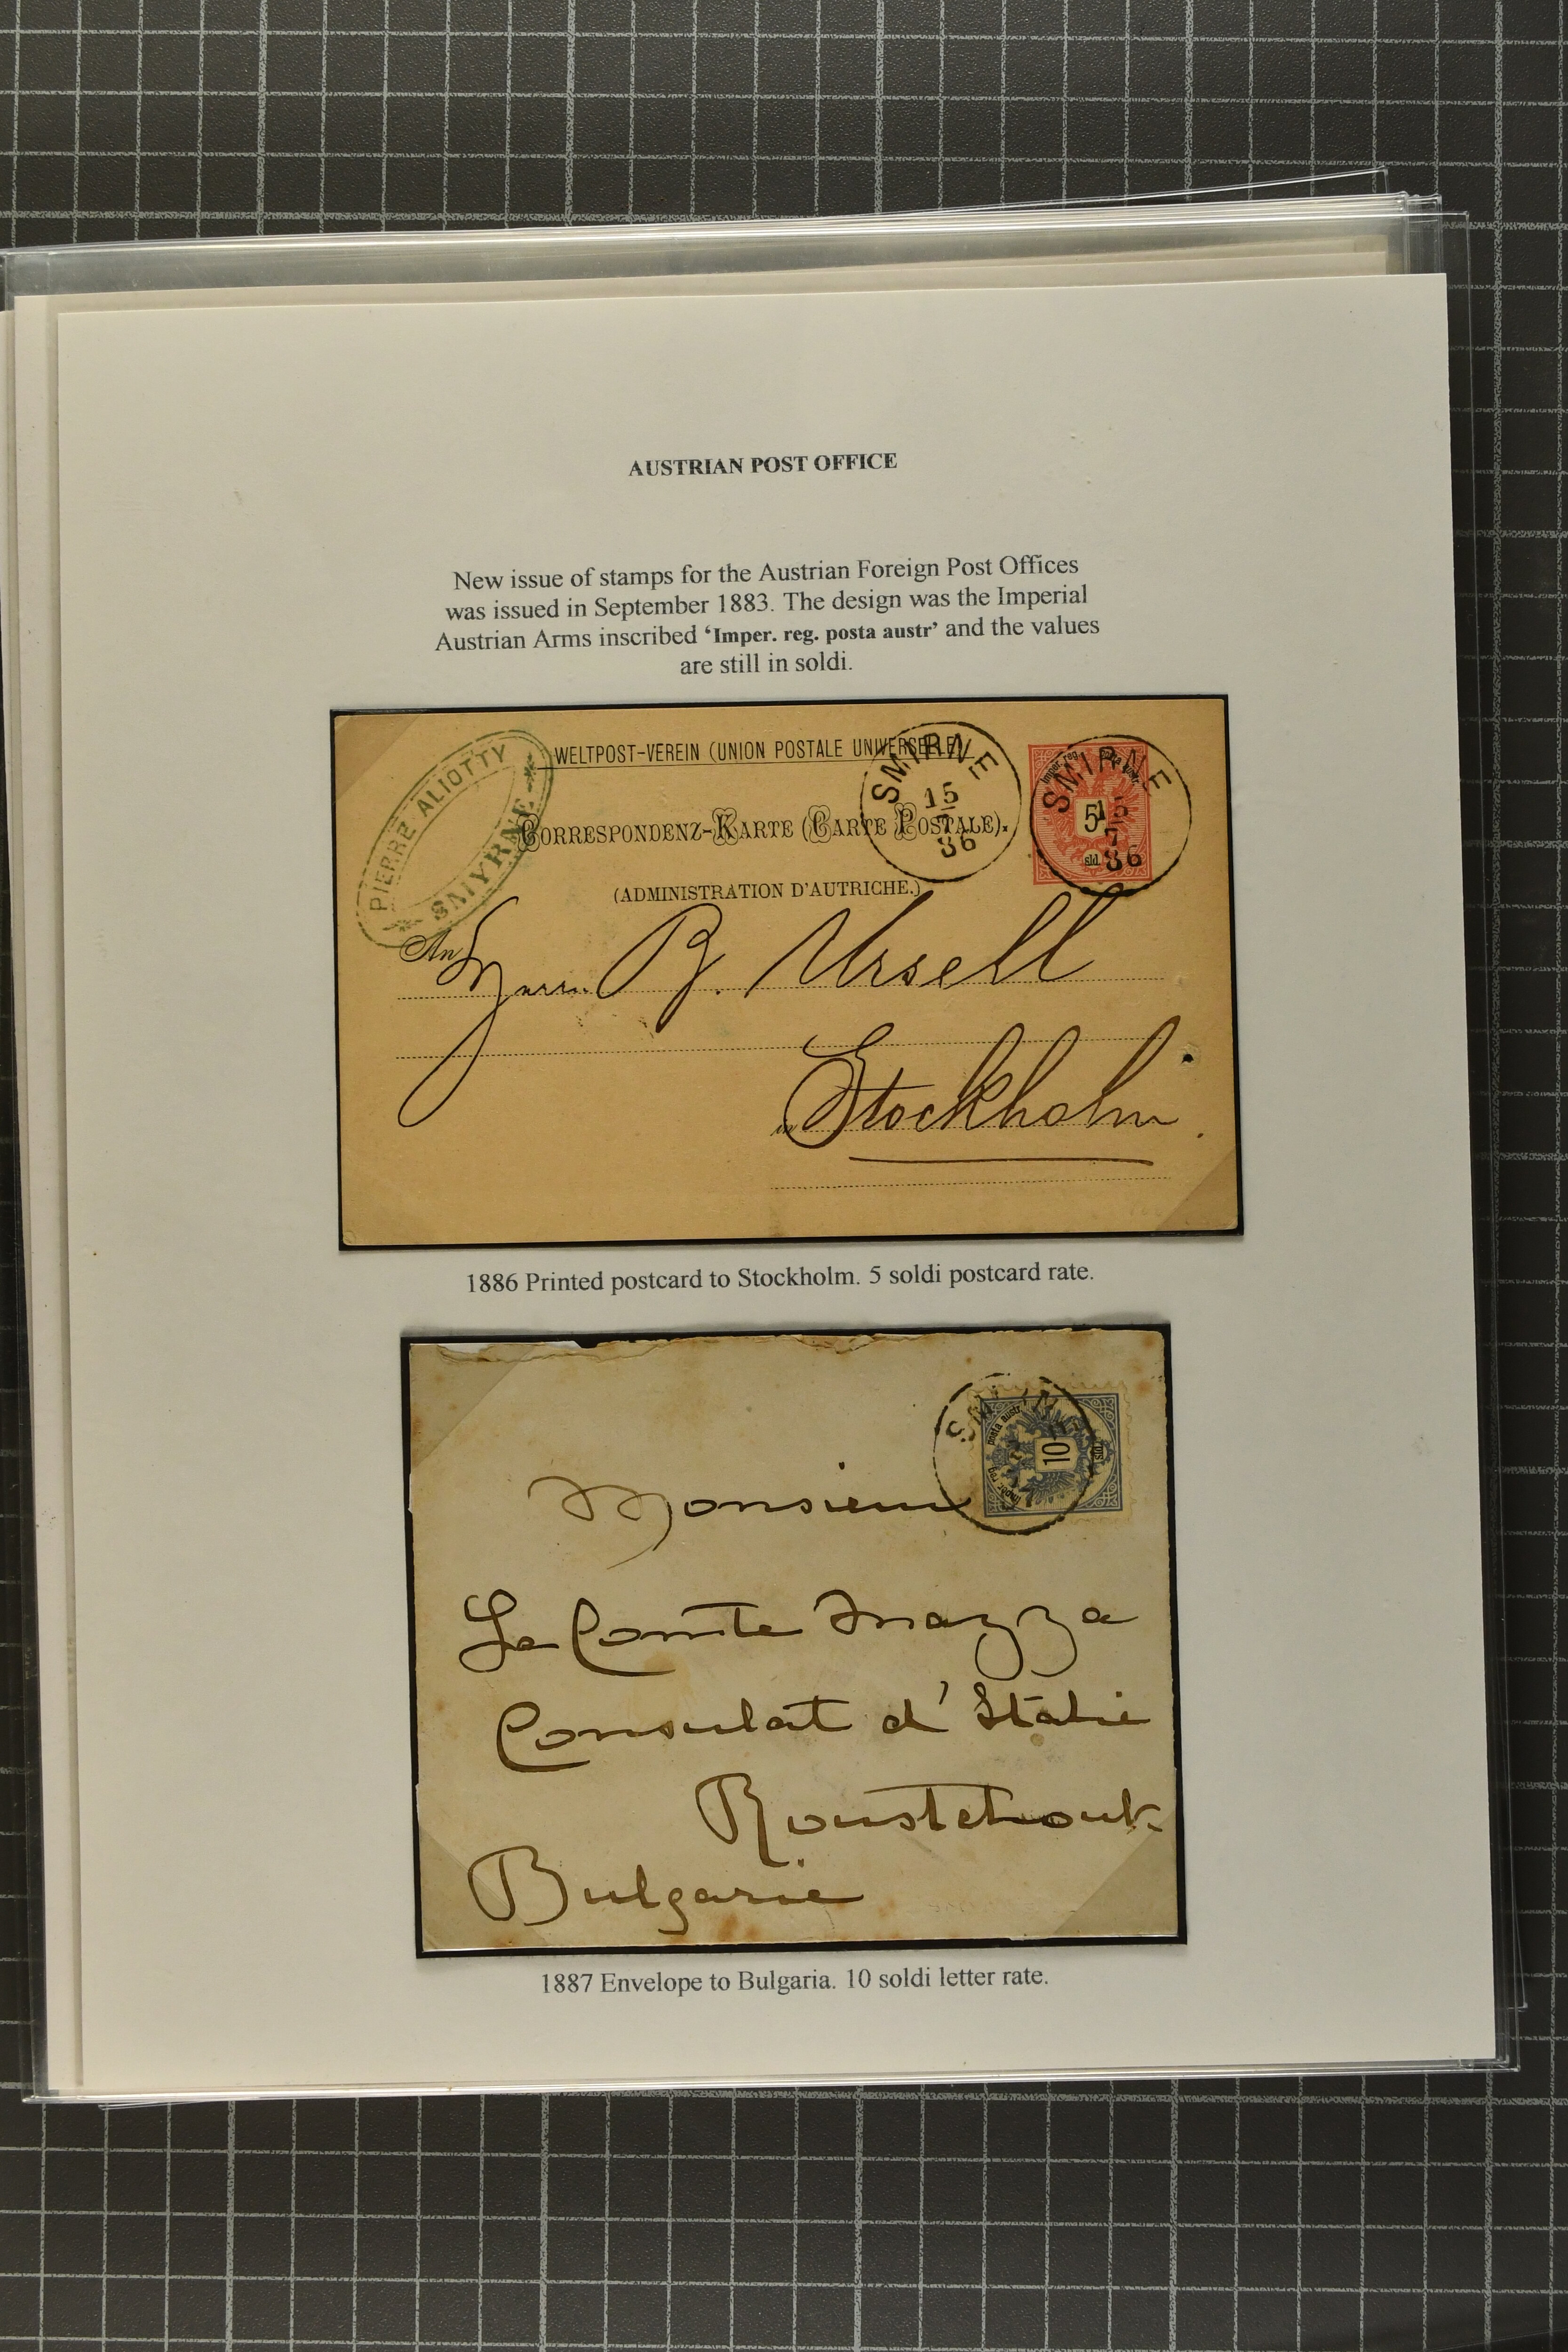 AUSTRIAN POST OFFICE
New issue of stamps for the Austrian Foreign Post Offices
was issued in September 1883. The design was the Imperial
Austrian Arms inscribed ‘Imper. reg. posta austr’ and the values
are still in soldi.
PIERRE ALIOTTY
SMYRNE
WELTPOST-VEREIN (UNION POSTALE UNIVERSELLE)
CORRESPONDENZ-KARTE (CARTE POSTALE).
(ADMINISTRATION D'AUTRICHE.)
SMIRNE
15
7
86
Imper. reg. posta austr.
5
sld.
SMIRNE
15
7
86
An Herrn B. Ursell
in Stockholm.
1886 Printed postcard to Stockholm. 5 soldi postcard rate.
Imper. reg. posta austr.
10
sld.
Monsieur
Le Comte Mazza
Consulat d'Italie
Roustchouk
Bulgarie
1887 Envelope to Bulgaria. 10 soldi letter rate.